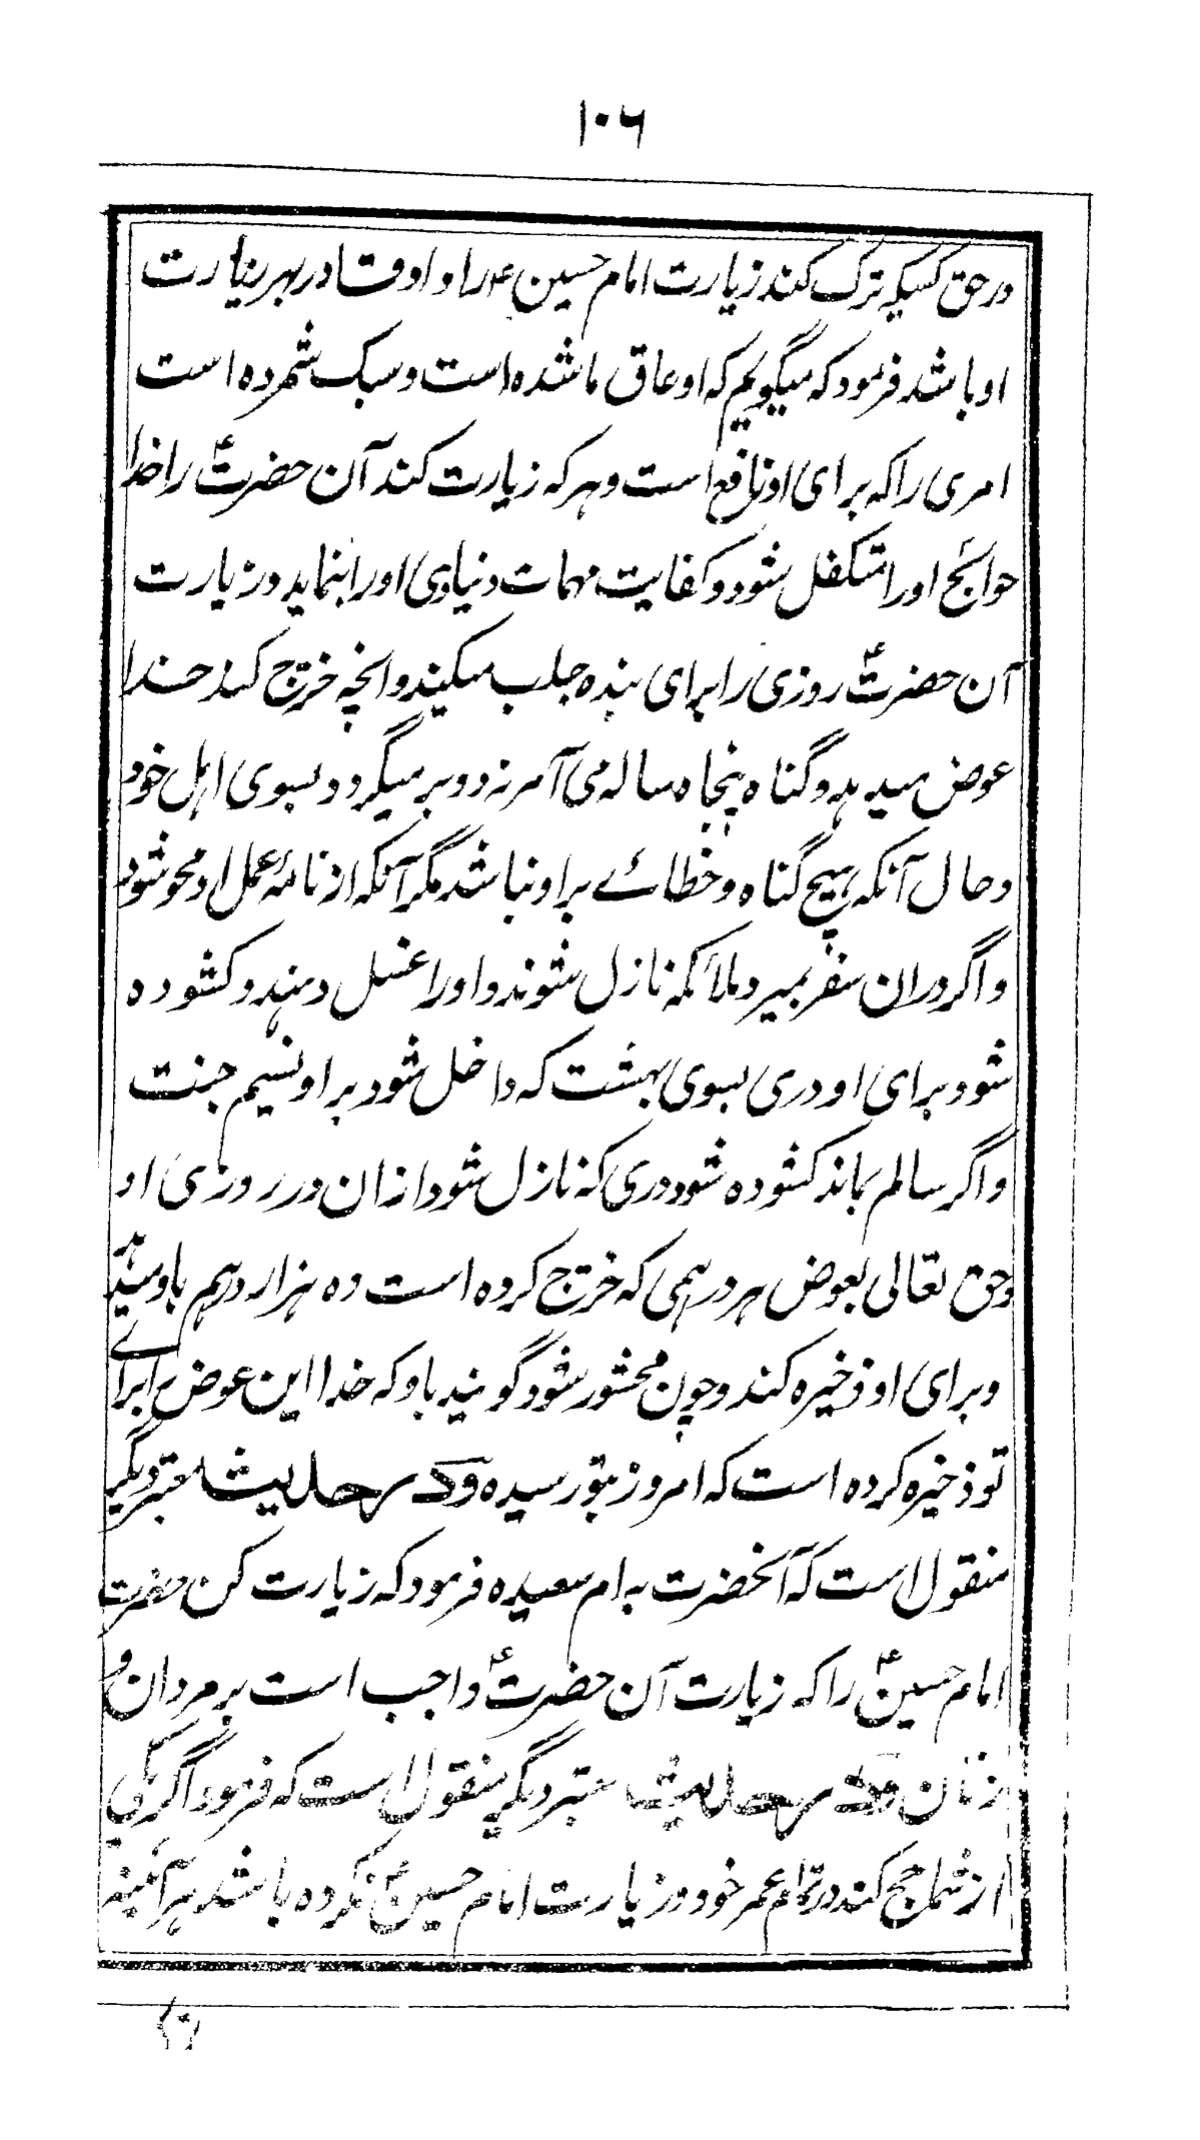 ۱۰۶
در حق کسیکه ترک کند زیارت امام حسین ع را و او قادر بهر زیارت
او باشد فرمود که میگویم که او عاق ما شده است و سبک شمرده است
امری را که برای او نافع است و هر که زیارت کند آن حضرتؑ را خدا
حوایج او را متکفل شود و کفایت مهمات دنیاوی او را بنماید و زیارت
آن حضرتؑ روزی را برای بنده جلب میکند و انچه خرج کند خدا
عوض میدهد و گناه پنجاه ساله می آمرزد و بر میگردد بسوی اهل خود
و حال آنکه هیچ گناه و خطائے بر او نباشد مگر آنکه از نامۂ عمل او محو شود
و اگر دران سفر بمیرد ملائکه نازل شوند و او را غسل دهند و کشوده
شود برای او دری بسوی بهشت که داخل شود بر او نسیم جنت
و اگر سالم بماند کشوده شود دری که نازل شود ازان در روزی او
و حق تعالی بعوض هر درهمی که خرج کرده است ده هزار درهم باو میدهد
و برای او ذخیره کند و چون محشور شود گویند باو که خدا این عوض را برای
تو ذخیره کرده است که امروز بتو رسیده و در حدیث معتبر دیگر
منقول است که آنحضرت به ام سعیده فرمود که زیارت کن حضرت
امام حسینؑ را که زیارت آن حضرتؑ واجب است بر مردان و
زنان و در حدیث معتبر دیگر منقول است که فرمود اگر یکی
از شما حج کند در تمام عمر خود و زیارت امام حسینؑ نکرده باشد هر آئینه